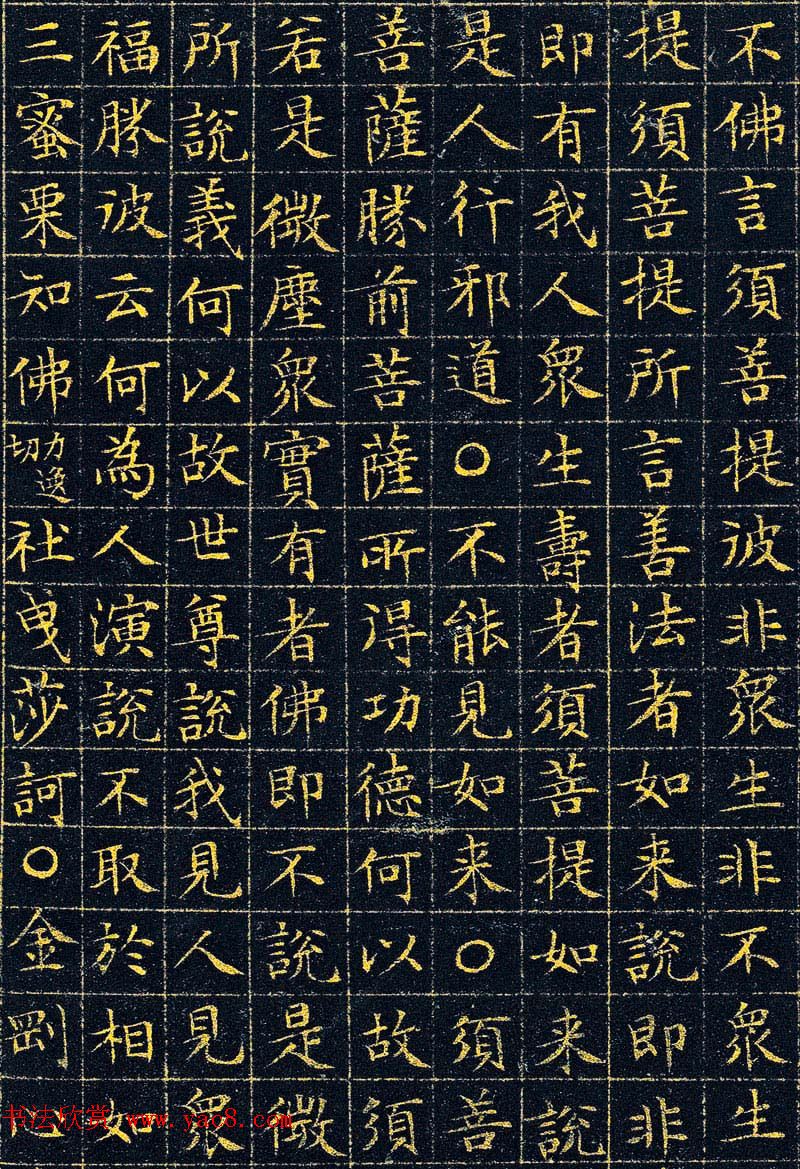 不佛言須善提彼非衆生非不衆生
提須菩提所言善法者如来說即非
即有我人衆生壽者須菩提如来說
是人行邪道○不能見如来○須善
菩薩勝前菩薩所得功德何以故須
若是微塵衆實有者佛即不說是微
所說義何以故世尊說我見人見衆
福勝彼云何為人演說不取於相如
三蜜栗知佛力逸切社曳莎訶○金剛
书法欣赏 www.yac8.com